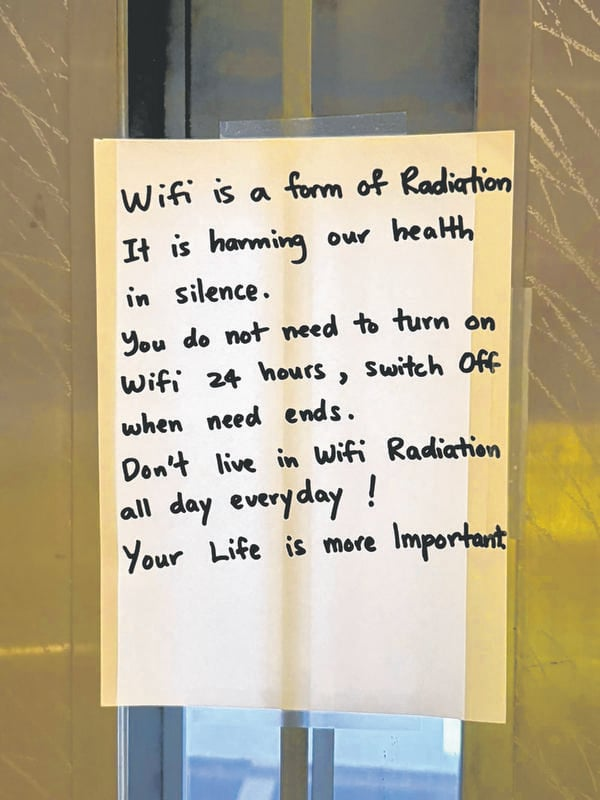 Wifi is a form of Radiation
It is harming our health
in silence.
You do not need to turn on
Wifi 24 hours, switch Off
when need ends.
Don't live in Wifi Radiation
all day everyday !
Your Life is more Important